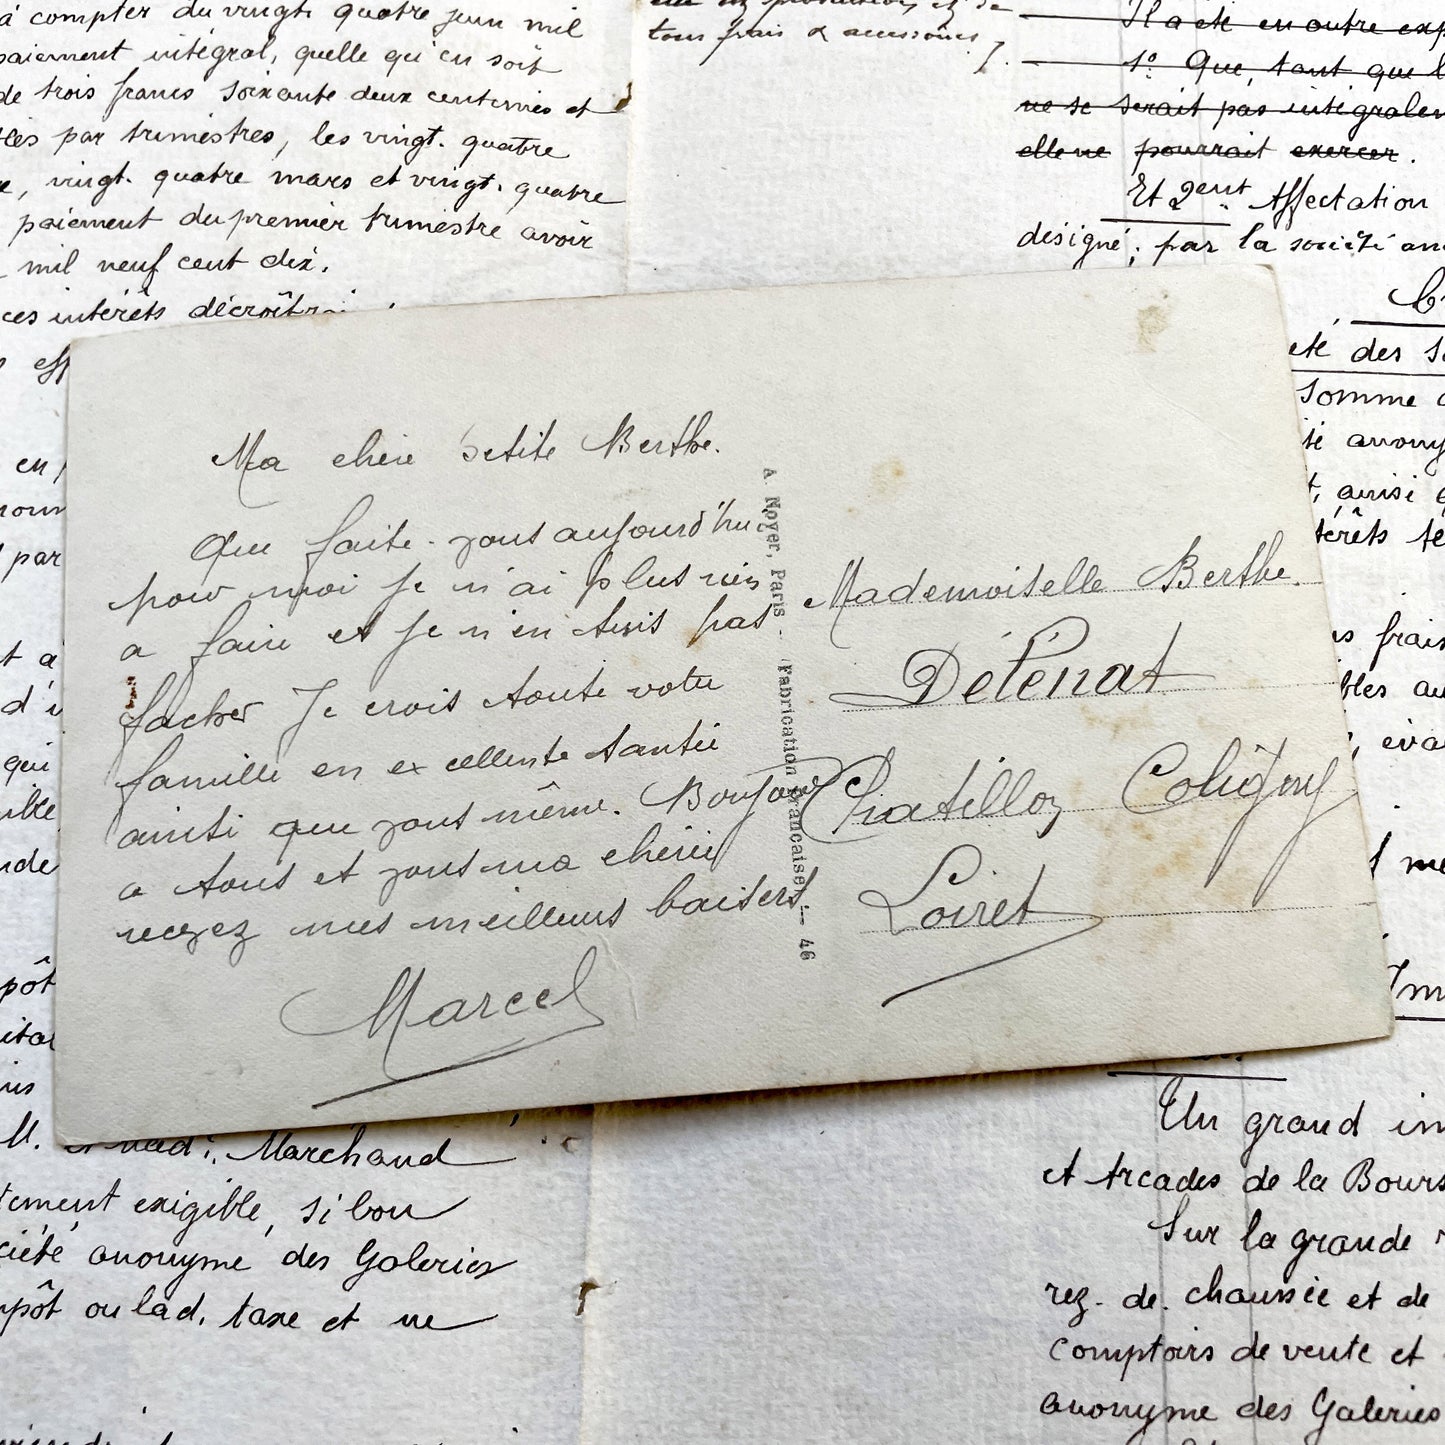 à compter du vingt. quatre juin mil
paiement intégral, quelle qu'en soit
de trois francs soixante deux centimes et
par trimestres, les vingt. quatre
vingt. quatre mars et vingt. quatre
paiement du premier trimestre avoir
mil neuf cent dix.
ces intérêts
tous frais & accessoires,
Il a été en outre
1º Que, tant que
ne se serait pas
elle ne pourrait exercer.
Et 2ent Affectation
désigné; par la société
des
somme
ainsi
en
par
frais
qui
Ma chère petite Berthe.
Que faite-vous aujourd'hui
pour moi je n'ai plus rien
a faire et je n'en suis pas
facher Je crois toute votre
famille en excellente santée
ainsi que vous même. Bonjour
a tous et vous ma chérie
recevez mes meilleurs baisers.
Marcel
A. Noyer, Paris. - Fabrication Française. - 46
Mademoiselle Berthe.
Délénat
Chatillon Coligny
Loiret
M. Marchand
exigible, si bon
anonyme des Galeries
ou lad. taxe et ne
Un grand
et Arcades de la
Sur la grande
rez-de-chaussée et de
comptoirs de vente et
anonyme des Galeries